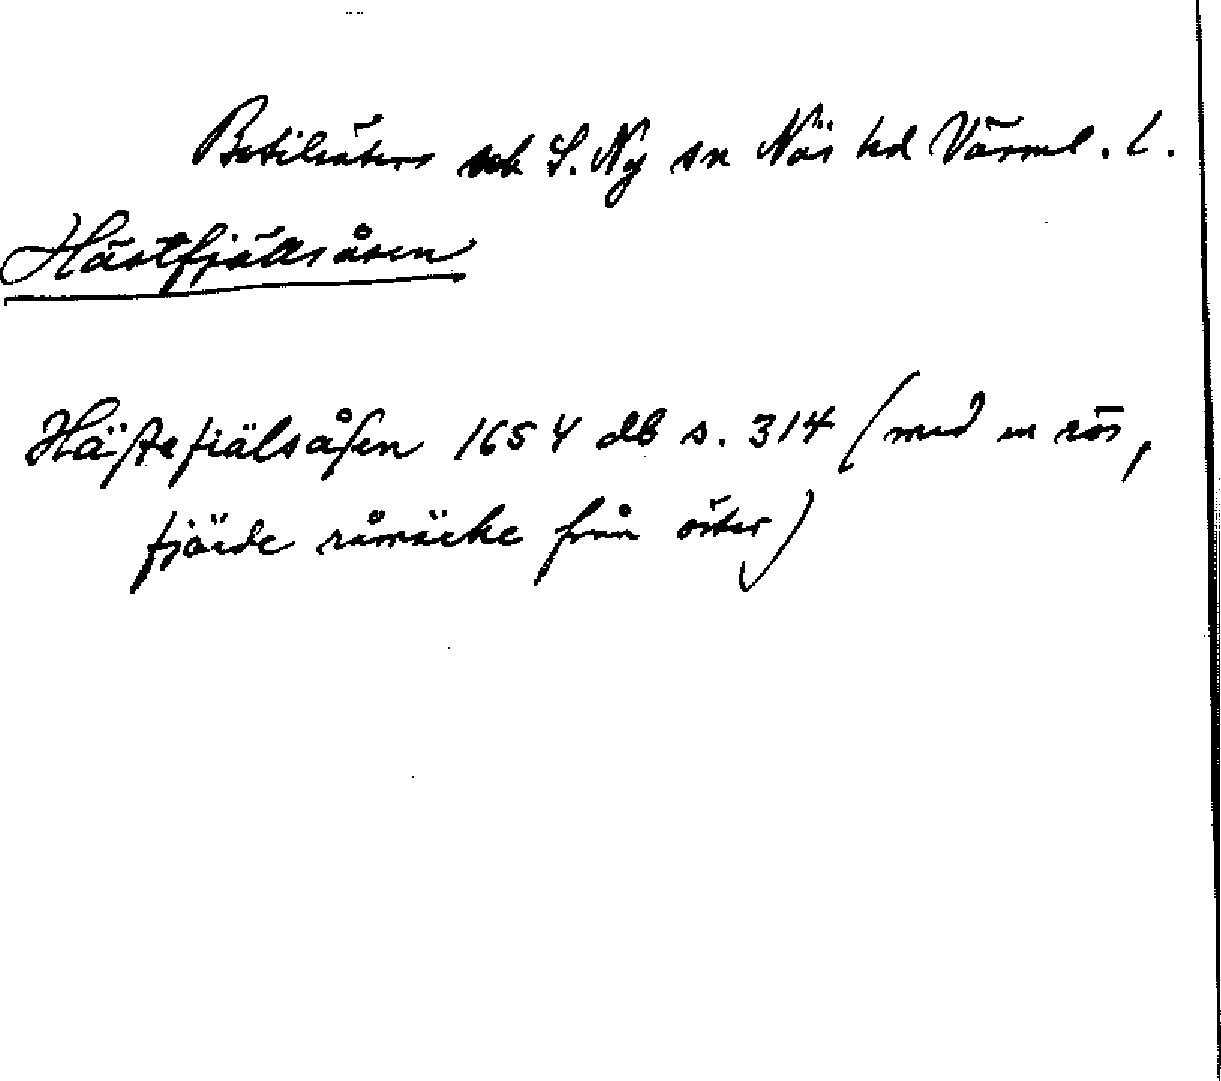 Betilsäters och S. Ny sn Näs hd Värml. l.
Hästfjällsåsen
Häste fiälsåsen 1654 db s. 314 (med en rös,
fjärde råmärke från öster)